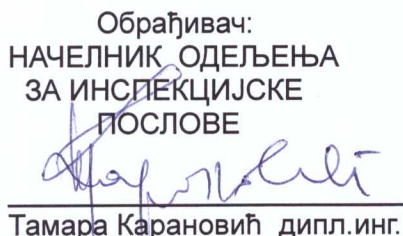 Обрађивач:
НАЧЕЛНИК ОДЕЉЕЊА
ЗА ИНСПЕКЦИЈСКЕ
ПОСЛОВЕ
Тамара Карановић дипл.инг.